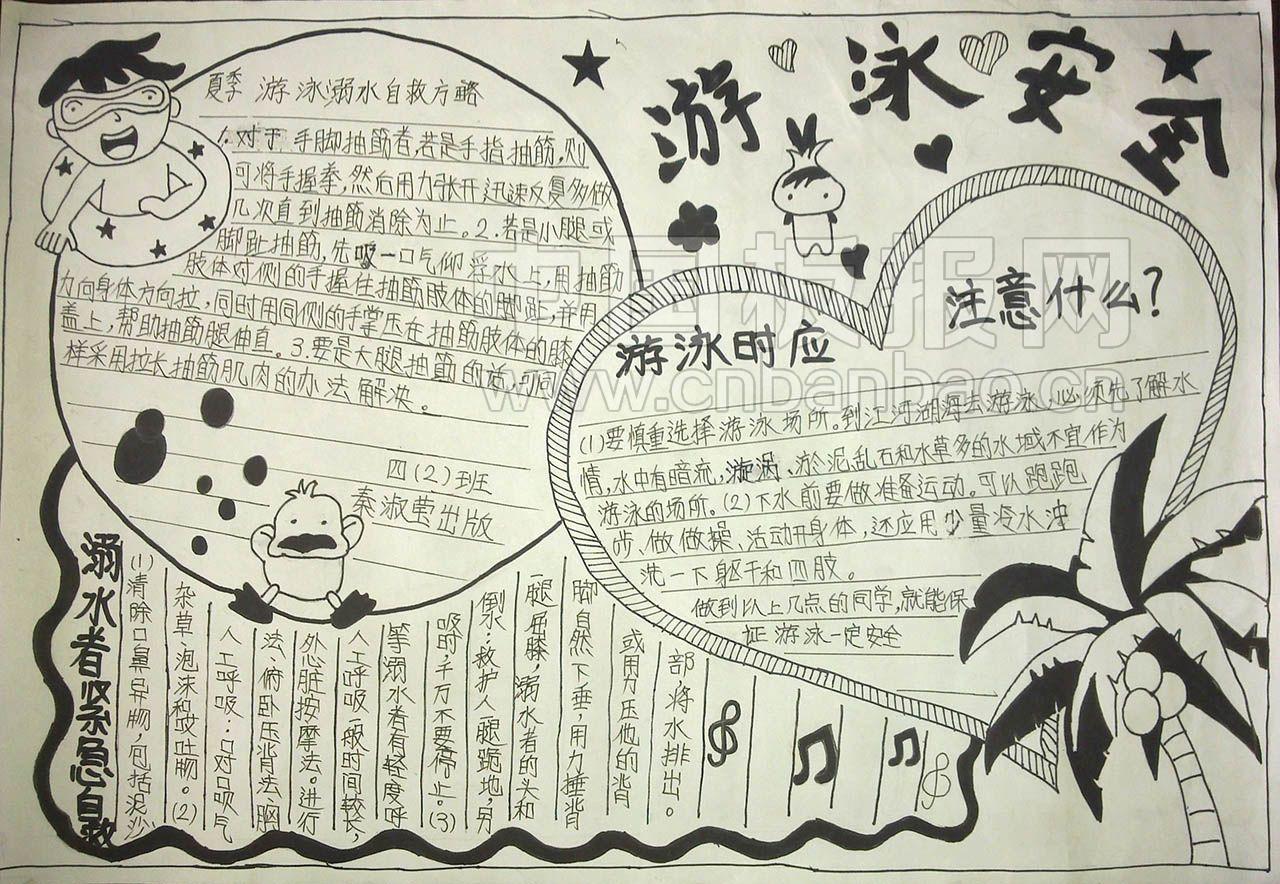 游泳安全
夏季 游泳溺水自救方略
1.对于手脚抽筋者,若是手指抽筋,则
可将手握拳,然后用力张开,迅速反复多做
几次直到抽筋消除为止。2.若是小腿或
脚趾抽筋,先吸一口气仰浮水上,用抽筋
肢体对侧的手握住抽筋肢体的脚趾,并用
力向身体方向拉,同时用同侧的手掌压在抽筋肢体的膝
盖上,帮助抽筋腿伸直。3.要是大腿抽筋的话,可同
样采用拉长抽筋肌肉的办法解决。
四(2)班
秦淑莹出版
游泳时应
注意什么?
(1)要慎重选择游泳场所。到江河湖海去游泳,必须先了解水
情,水中有暗流,漩涡、淤泥乱石和水草多的水域不宜作为
游泳的场所。(2)下水前要做准备运动。可以跑跑
步、做做操、活动开身体,还应用少量冷水冲
洗一下躯干和四肢。
做到以上几点的同学,就能保
证游泳一定安全
溺水者紧急自救
(1)清除口鼻异物,包括泥沙
杂草、泡沫和呕吐物。(2)
人工呼吸:口对口吹气
法、俯卧压背法、胸
外心脏按摩法。进行
人工呼吸一般时间较长,
等溺水者有轻度呼
吸时,千万不要停止。(3)
倒水:救护人腿跪地,另
一腿屈膝,溺水者的头和
脚自然下垂,用力捶背
或用力压他的背
部将水排出。
中国板报网
www.cnbanbao.cn